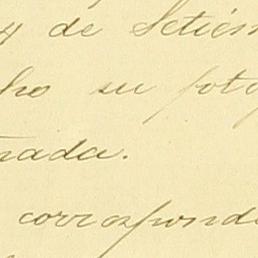 de Setiem
ho su foto
nada.
correspond